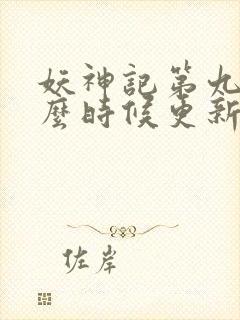 妖神記第九
麼時候更新
佐岸